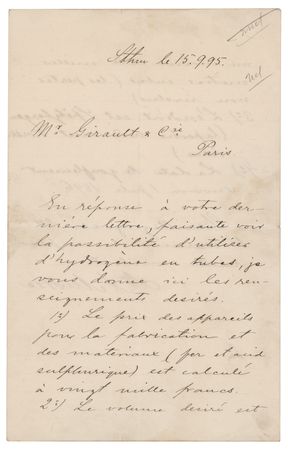 Sthm le 15.9.95.
Mr Girault & Cie
Paris
En réponse à votre der-
nière lettre, faisante voir
la possibilité d'utiliser
d'hydrogène en tubes, je
vous donne ici les ren-
seignements desirés.
1:) Le prix des appareils
pour la fabrication et
des materiaux (fer et acid
sulphurique) est calculé
à vingt mille francs.
2:) Le volume desiré est